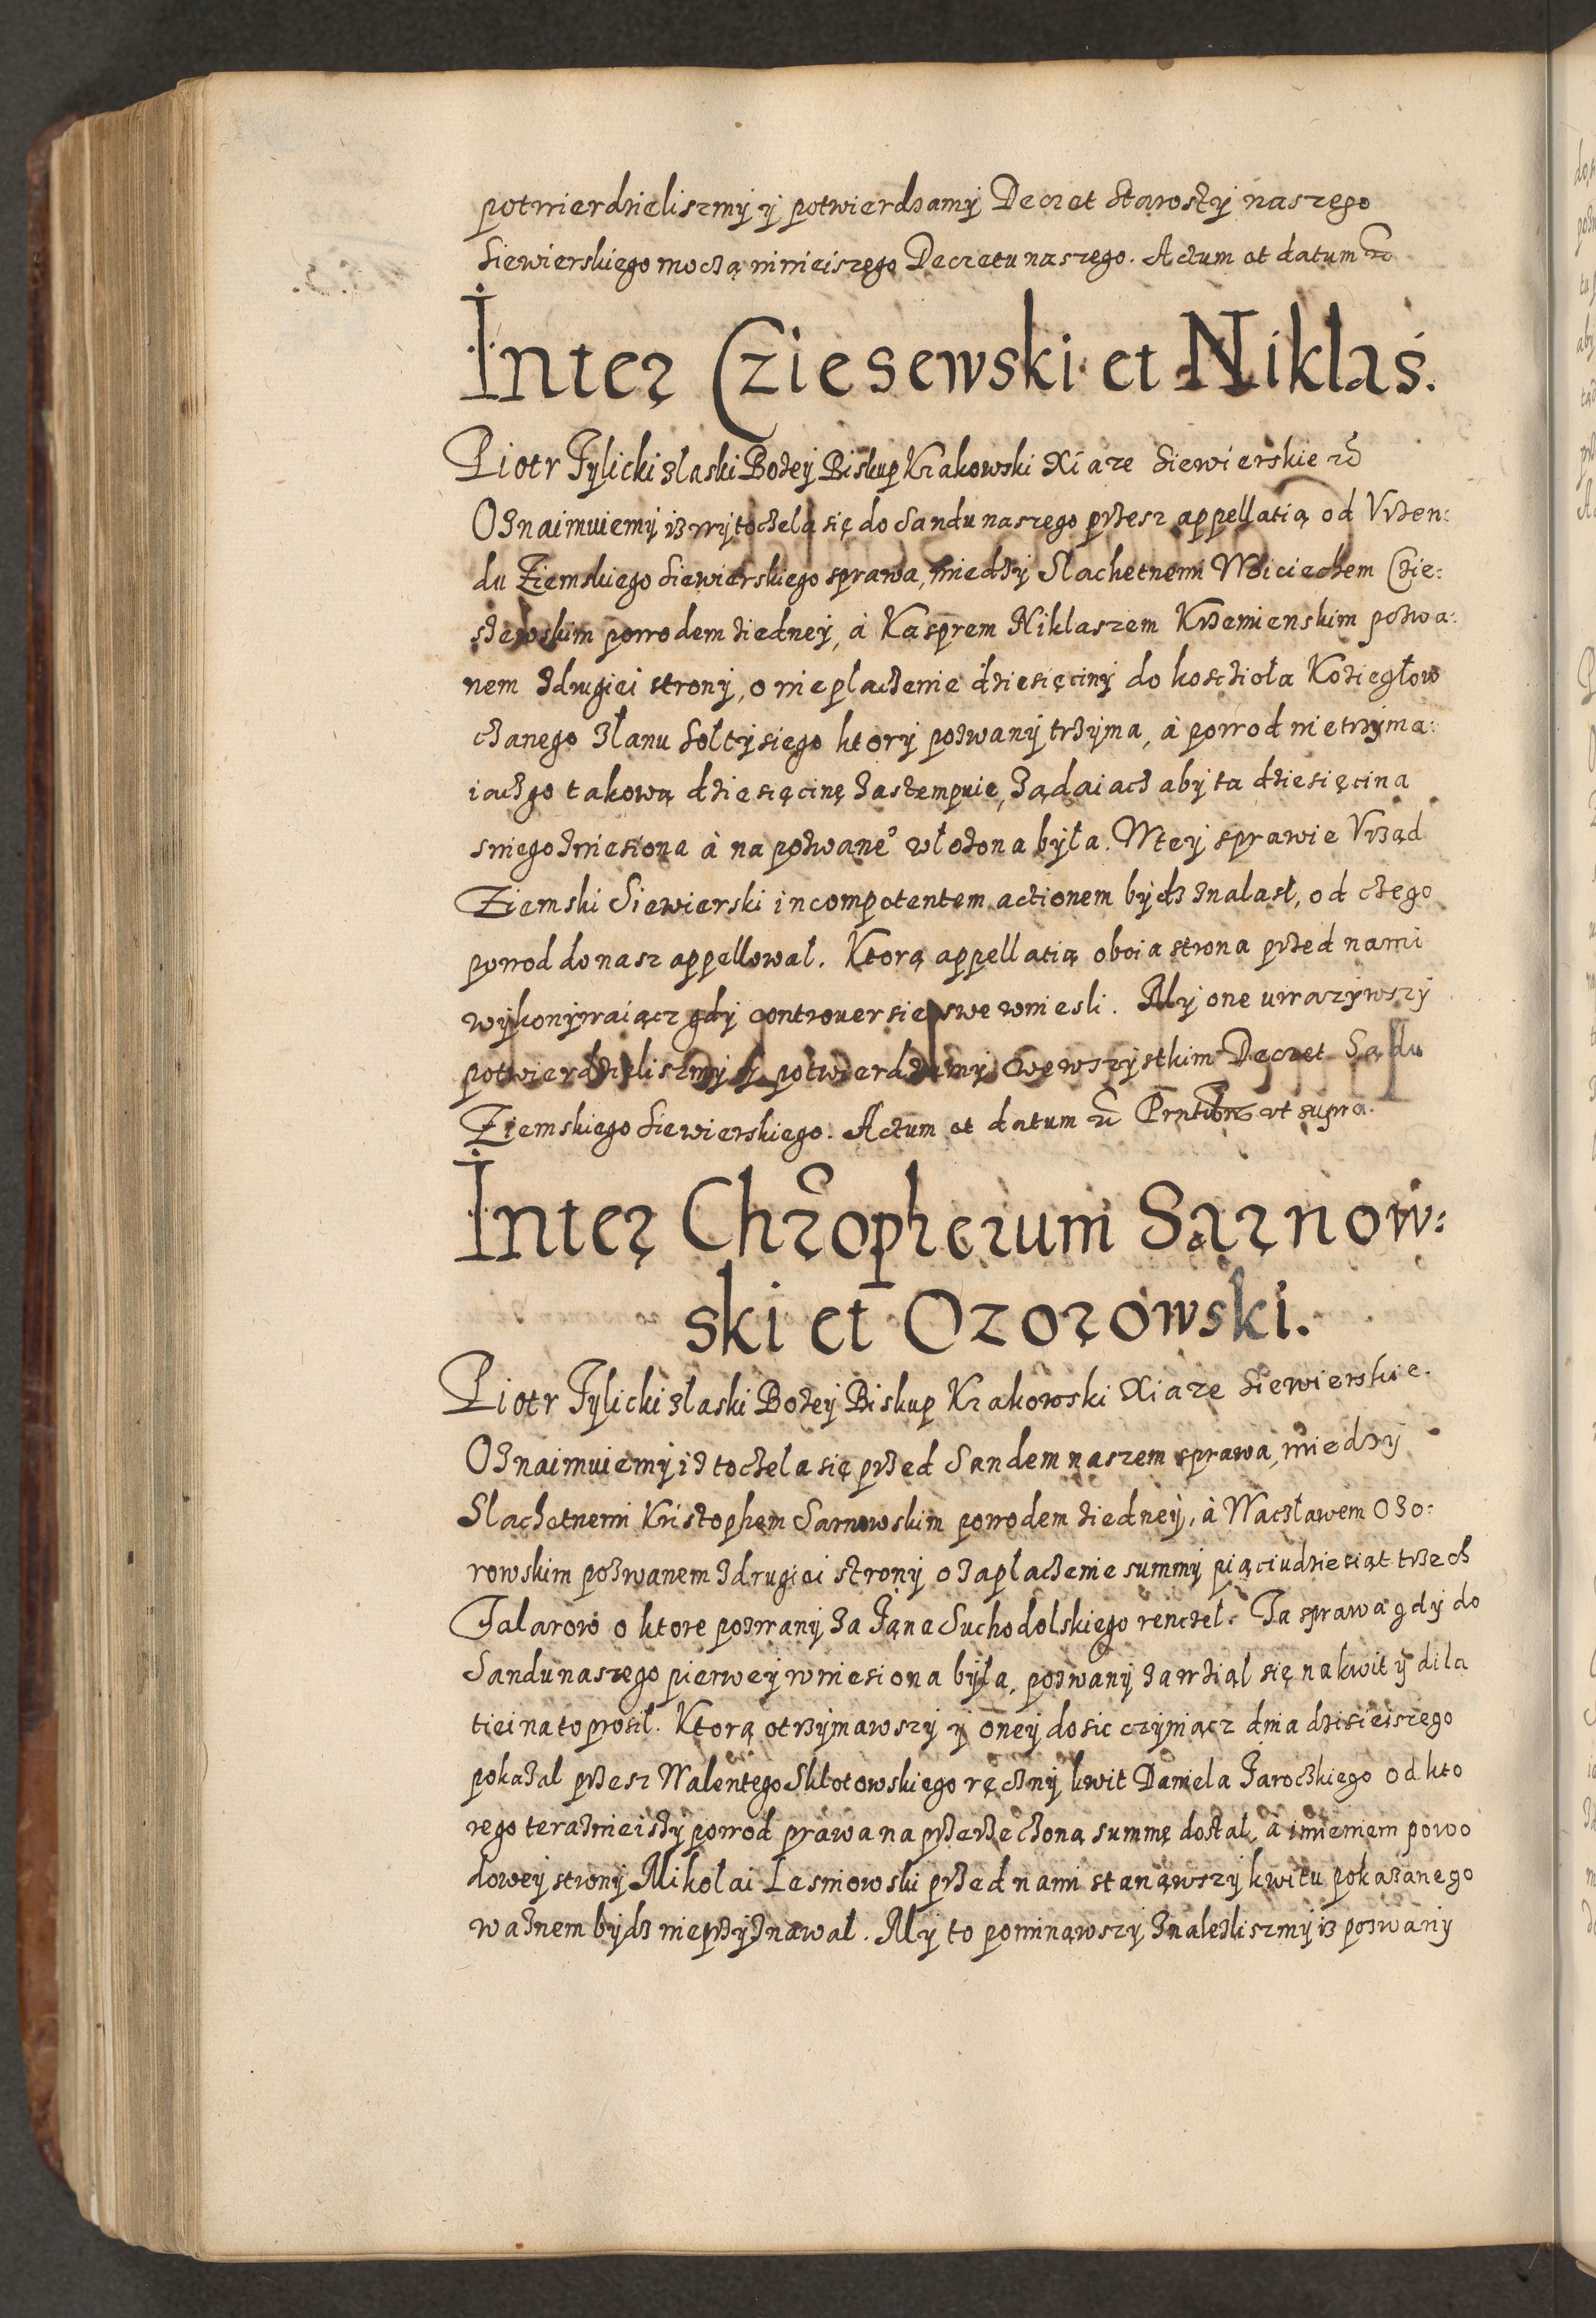 potwierdzieliszmy y potwierdzamy Decret Starosty naszego
Siewierskiego moczą ninieiszego Decretu naszego. Actum et datum etc
Inter Cziesewski et Niklas.
Piotr Tylicki zlaski Bozey Biskup Krakowski Xiaze Siewierskie etc
Oznaimuiemy iz wytoczela się do Sandu naszego przesz appellatią od Vrzen:
du Ziemskiego Siewierskiego sprawa, miedzy Slachetnemi Woiciechem Czie:
szewskim powodem ziedney, à Kasprem Niklaszem Krzemienskim pozwa:
nem zdrugiei strony, o nieplaczenie dziesięciny do koscziola Koziegłow
czanego zlanu Soltysiego ktory pozwany trzyma, à powod nietrzyma:
iączgo takową dziesięcinę zastempuie, ządaiacz aby ta dziesięcina
sniego zniesiona à na pozwane° włozona była. Wtey sprawie Vrząd
Ziemski Siewierski incompetentem actionem bydz znalasł, od czego
powod do nasz appellowal. Ktorą appellatią oboia strona przed nami
wykonywaiącz gdy controuersie swe wniesli. My one uwazywszy
potwierdzieliszmy y potwierdzamy wewszystkim Decret Sądu
Ziemskiego Siewierskiego. Actum et datum etc Prntibus ut supra.
Inter Chrophorum Sarnow:
ski et Ozorowski.
Piotr Tylicki zlaski Bozey Biskup Krakowski Xiaze Siewierskie.
Oznaimuiemy iz toczela się przed Sandem naszem sprawa, miedzy
Slachetnemi Kristophem Sarnowskim powodem ziedney, à Waczławem Ozo:
rowskim pozwanem zdrugiei strony o zaplaczenie summy piąciudziesiąt trzech
Talarow o ktore pozwany za Jana Suchodolskiego renczel. Ta sprawa gdy do
Sandu naszego pierwey wniesiona była, pozwany zawziąl się na kwit y dila
tiei na to prosil. Ktorą otrzymawszy y oney dosic czyniącz dnia dzisieiszego
pokazal przesz Walentego Skłotowskiego ręczny kwit Daniela Jaroczkiego od kto
rego teraznieiszy powod prawa na przerzeczoną summę dostal, à imieniem powo
dowey strony Mikolai Lesniowski przed nami stanąwszy kwitu pokazanego
waznem bydz nieprzyznawal. My to pominąwszy znalezliszmy iz pozwany